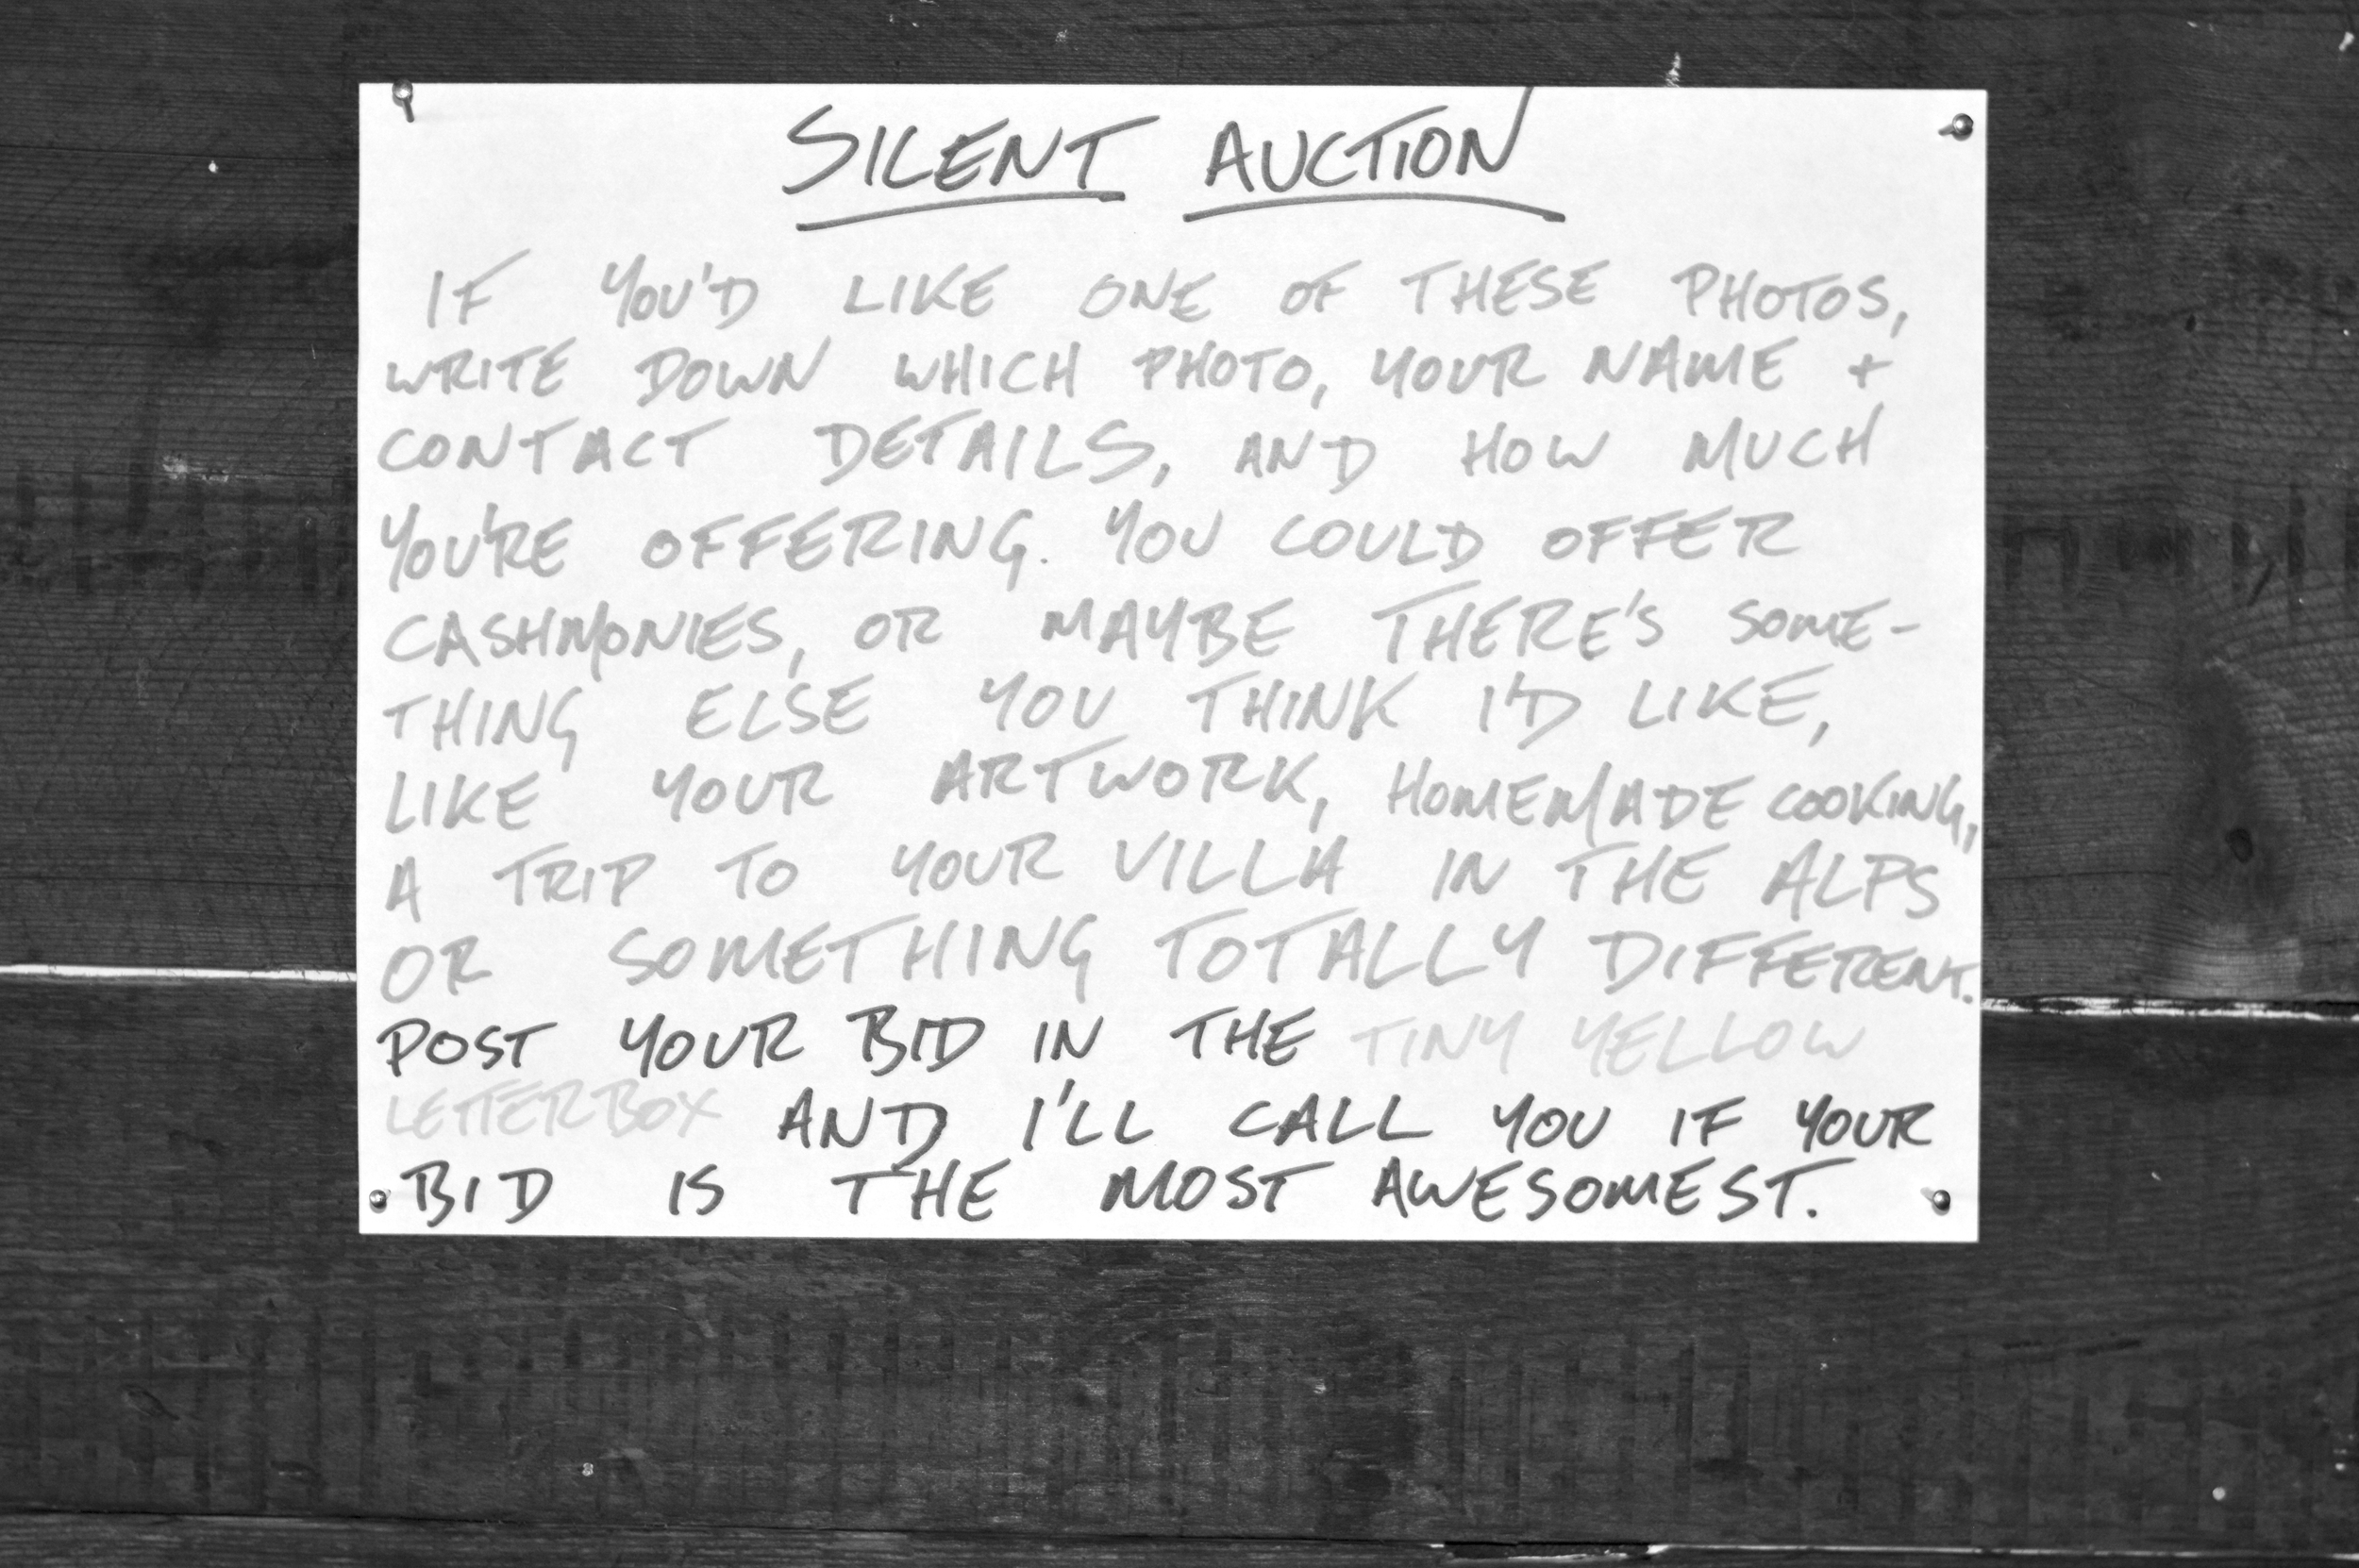 SILENT AUCTION
IF YOU'D LIKE ONE OF THESE PHOTOS,
WRITE DOWN WHICH PHOTO, YOUR NAME +
CONTACT DETAILS, AND HOW MUCH
YOU'RE OFFERING. YOU COULD OFFER
CASHMONIES, OR MAYBE THERE'S SOME-
THING ELSE YOU THINK I'D LIKE,
LIKE YOUR ARTWORK, HOMEMADE COOKING,
A TRIP TO YOUR VILLA IN THE ALPS
OR SOMETHING TOTALLY DIFFERENT.
POST YOUR BID IN THE TINY YELLOW
LETTERBOX AND I'LL CALL YOU IF YOUR
BID IS THE MOST AWESOMEST.